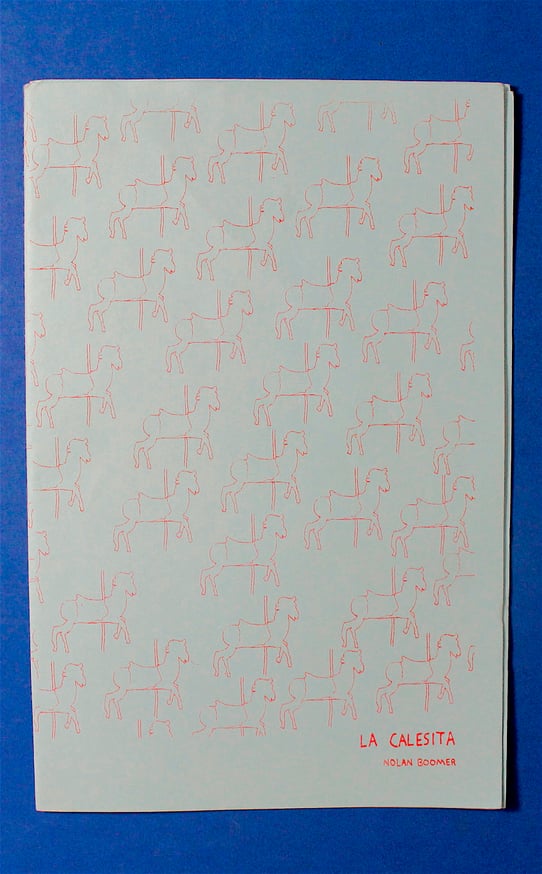 LA CALESITA
NOLAN BOOMER